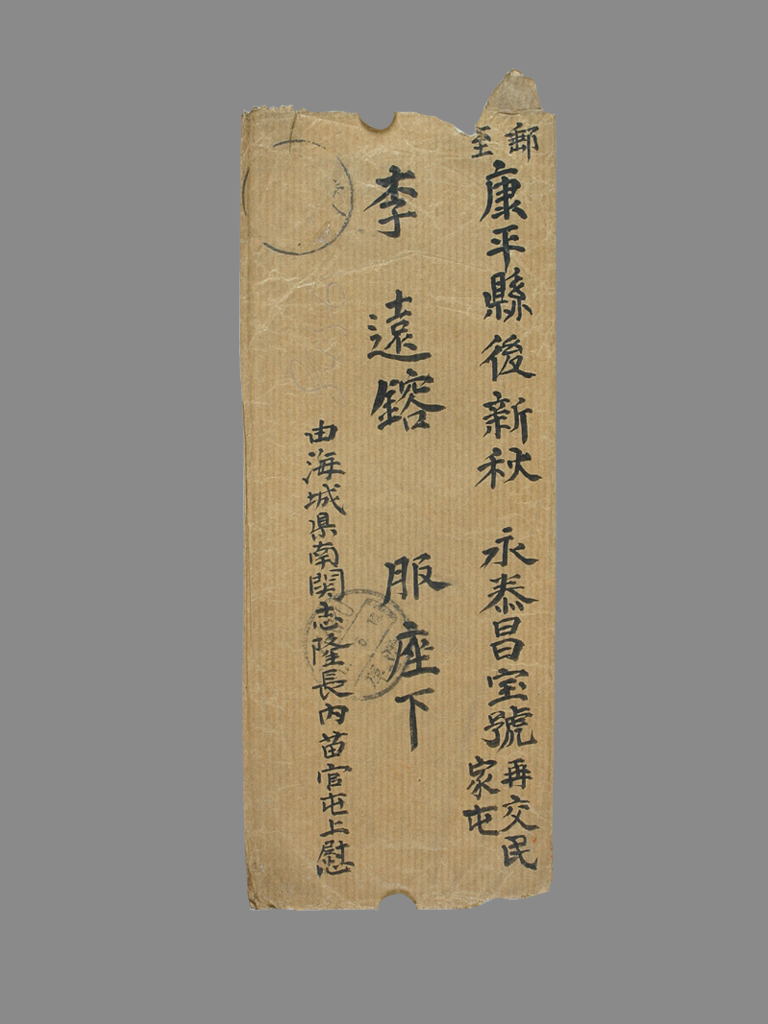 郵至
康平縣後新秋 永泰昌宝號
再交民家屯
李遠鎔 服座下
由海城県南関志隆長内苗官屯上慰